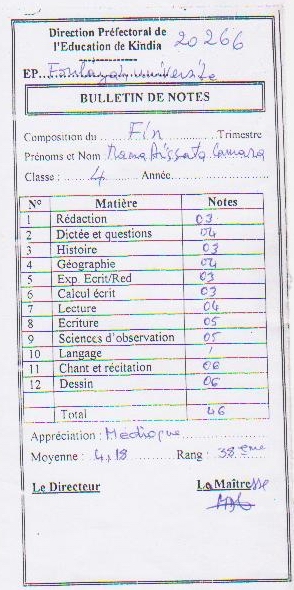 Direction Préfectoral de
l'Education de Kindia 20266
EP.....Foulayah université
BULLETIN DE NOTES
Composition du.....Fin.....Trimestre
Prénoms et Nom Mama Aissata Camara
Classe :.....4.....Année.....
N° Matière Notes
1 Rédaction 03
2 Dictée et questions 04
3 Histoire 03
4 Géographie 04
5 Exp. Ecrit/Red 03
6 Calcul écrit 03
7 Lecture 04
8 Ecriture 05
9 Sciences d'observation 05
10 Langage /
11 Chant et récitation 06
12 Dessin 06
Total 46
Appréciation : Médiogre
Moyenne : 4,18 Rang : 38ème
Le Directeur La Maîtresse